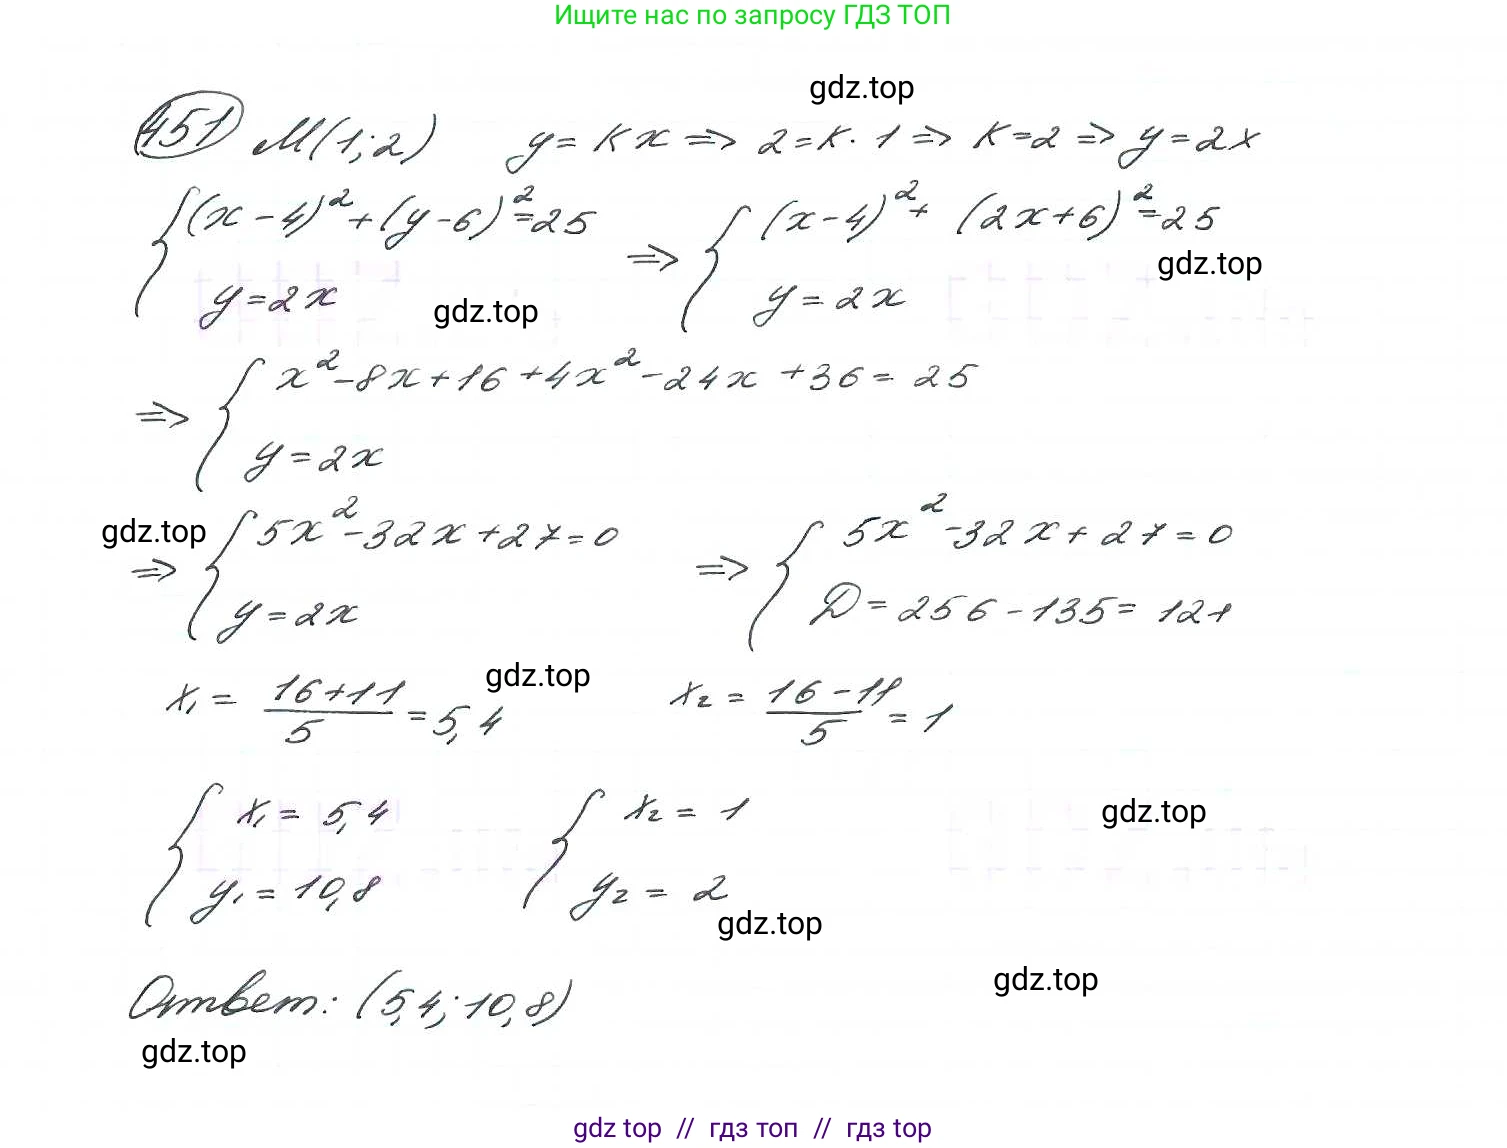 Ищите нас по запросу ГДЗ ТОП
gdz.top
451 M(1;2) y=кx ⇒ 2=к·1 ⇒ к=2 ⇒ y=2x
{(x-4)²+(y-6)²=25 ⇒ {(x-4)²+(2x+6)²=25
gdz.top
y=2x y=2x
gdz.top
⇒ {x²-8x+16+4x²-24x+36=25
y=2x
gdz.top
⇒ {5x²-32x+27=0 ⇒ {5x²-32x+27=0
y=2x D=256-135=121
gdz.top
x₁=(16+11)/5=5,4 x₂=(16-11)/5=1
{x₁=5,4 {x₂=1
gdz.top
y₁=10,8 y₂=2
gdz.top
gdz.top
Ответ: (5,4;10,8)
gdz.top
gdz top // гдз топ // гдз top